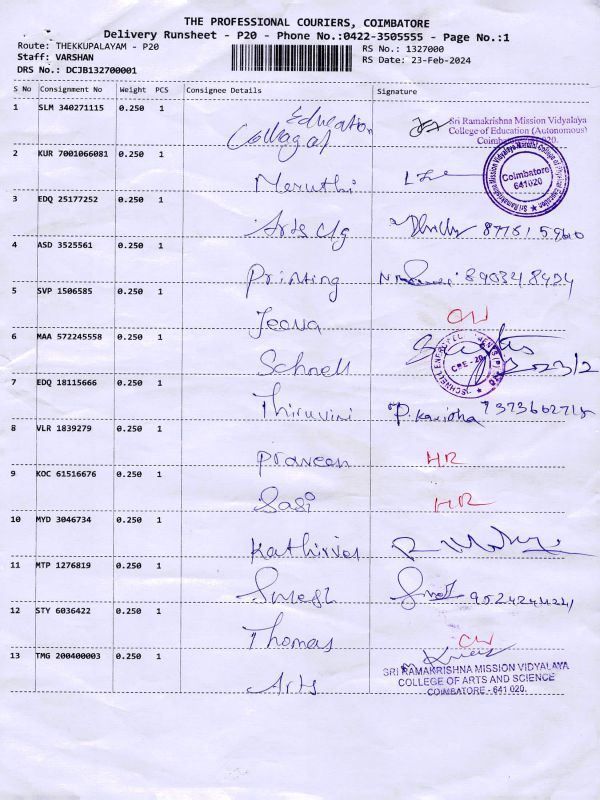 THE PROFESSIONAL COURIERS, COIMBATORE
Delivery Runsheet - P20 - Phone No.:0422-3505555 - Page No.:1
Route: THEKKUPALAYAM - P20
RS No.: 1327000
Staff: VARSHAN
RS Date: 23-Feb-2024
DRS No.: DCJB132700001
S No Consignment No Weight PCS Consignee Details Signature
1 SLM 340271115 0.250 1 Education
College of
Sri Ramakrishna Mission Vidyalaya
College of Education (Autonomous)
Coimbatore - 641 020.
2 KUR 7001066081 0.250 1 Maruthi
Coimbatore
641020
3 EDQ 25177252 0.250 1 Arts clg
4 ASD 3525561 0.250 1 Printing 890348424
5 SVP 1506585 0.250 1 Jeeva
6 MAA 572245558 0.250 1 Schnell
CBE - 20
23/2
7 EDQ 18115666 0.250 1 Thiruvini P. Kanisha 7373662715
8 VLR 1839279 0.250 1 Praveen HR
9 KOC 61516676 0.250 1 Sasi HR
10 MYD 3046734 0.250 1 Kathirvel
11 MTP 1276819 0.250 1 Suresh
12 STY 6036422 0.250 1 Thomas
13 TMG 200400003 0.250 1 Arts
SRI RAMAKRISHNA MISSION VIDYALAYA
COLLEGE OF ARTS AND SCIENCE
COIMBATORE - 641 020.